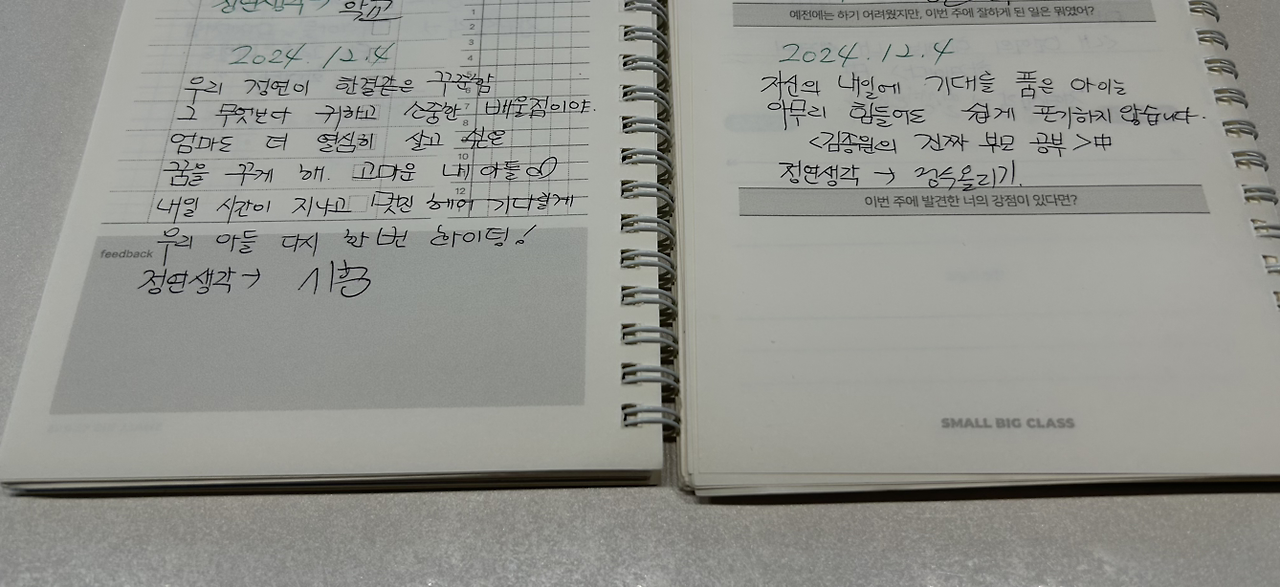 정연생각 → 학교
2024. 12. 4
우리 정연이 한결같은 꾸준함
그 무엇보다 귀하고 소중한 배울점이야.
엄마도 더 열심히 살고 싶은
꿈을 꾸게 해. 고마운 내 아들
내일 시간이 지나고 기다릴게
우리 아들 다시 한 번 화이팅!
feedback
정연생각 → 시험
1
2
3
4
7
8
10
12
예전에는 하기 어려웠지만, 이번 주에 잘하게 된 일은 뭐였어?
2024. 12. 4
자신의 내일에 기대를 품은 아이는
아무리 힘들어도 쉽게 포기하지 않습니다.
<김종원의 진짜 부모 공부>中
정연생각 → 점수올리기.
이번 주에 발견한 너의 강점이 있다면?
SMALL BIG CLASS